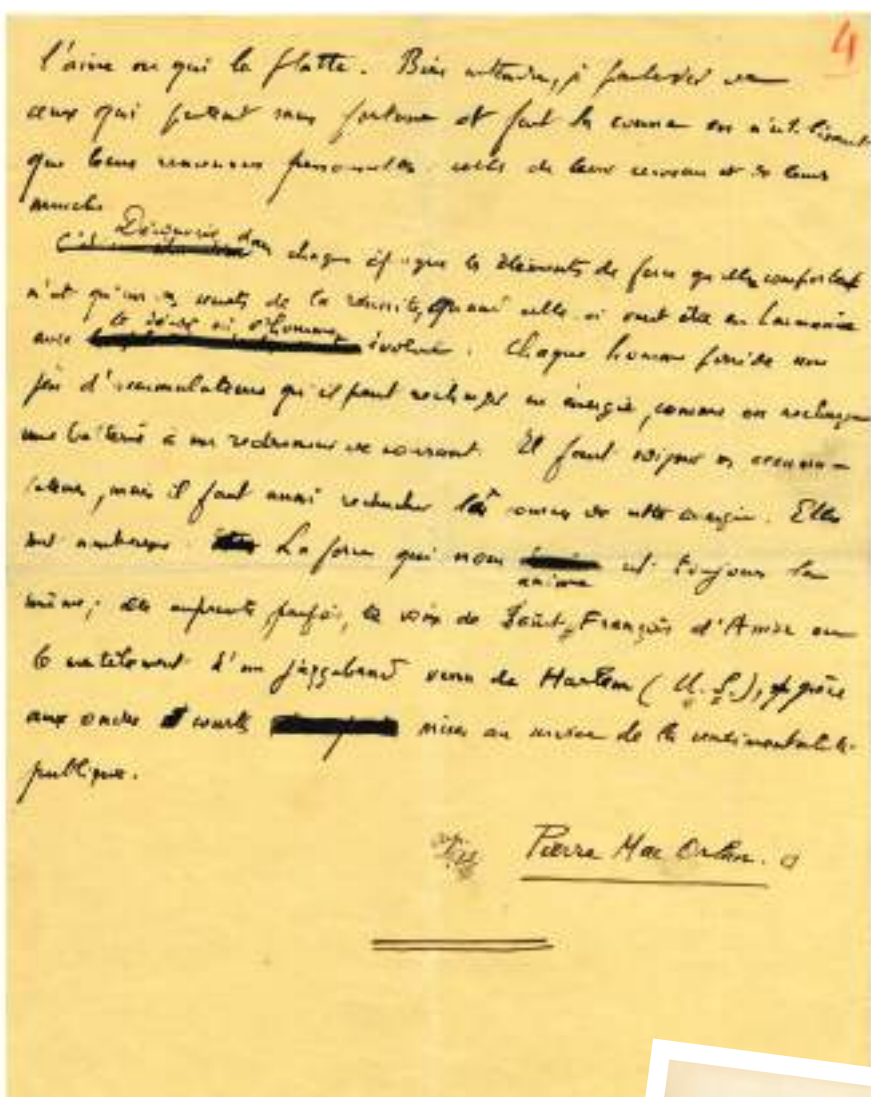 4
l'aime ou qui la flatte. Bien entendu, je
ceux qui partent sans fortune et font la course en n'utilisant
que leurs ressources personnelles, celles de leur cerveau et de leurs
muscles.
Découvrir dans chaque époque les éléments de force qu'elle comporte
n'est qu'un des secrets de la réussite, quand celle-ci veut être en harmonie
avec le décor où l'homme évolue. Chaque homme possède un
jeu d'accumulateurs qu'il faut recharger en énergie, comme on recharge
une batterie à un redresseur de courant. Il faut soigner ces accumu-
lateurs, mais il faut aussi rechercher les sources de cette énergie. Elles
sont nombreuses. La force qui nous anime est toujours la
même; elle emprunte parfois, la voix de Saint-François d'Assise ou
le martèlement d'un jazzband venu de Harlem (U.S.), grâce
aux ondes courtes mises au service de la sentimentalité
publique.
Pierre Mac Orlan.